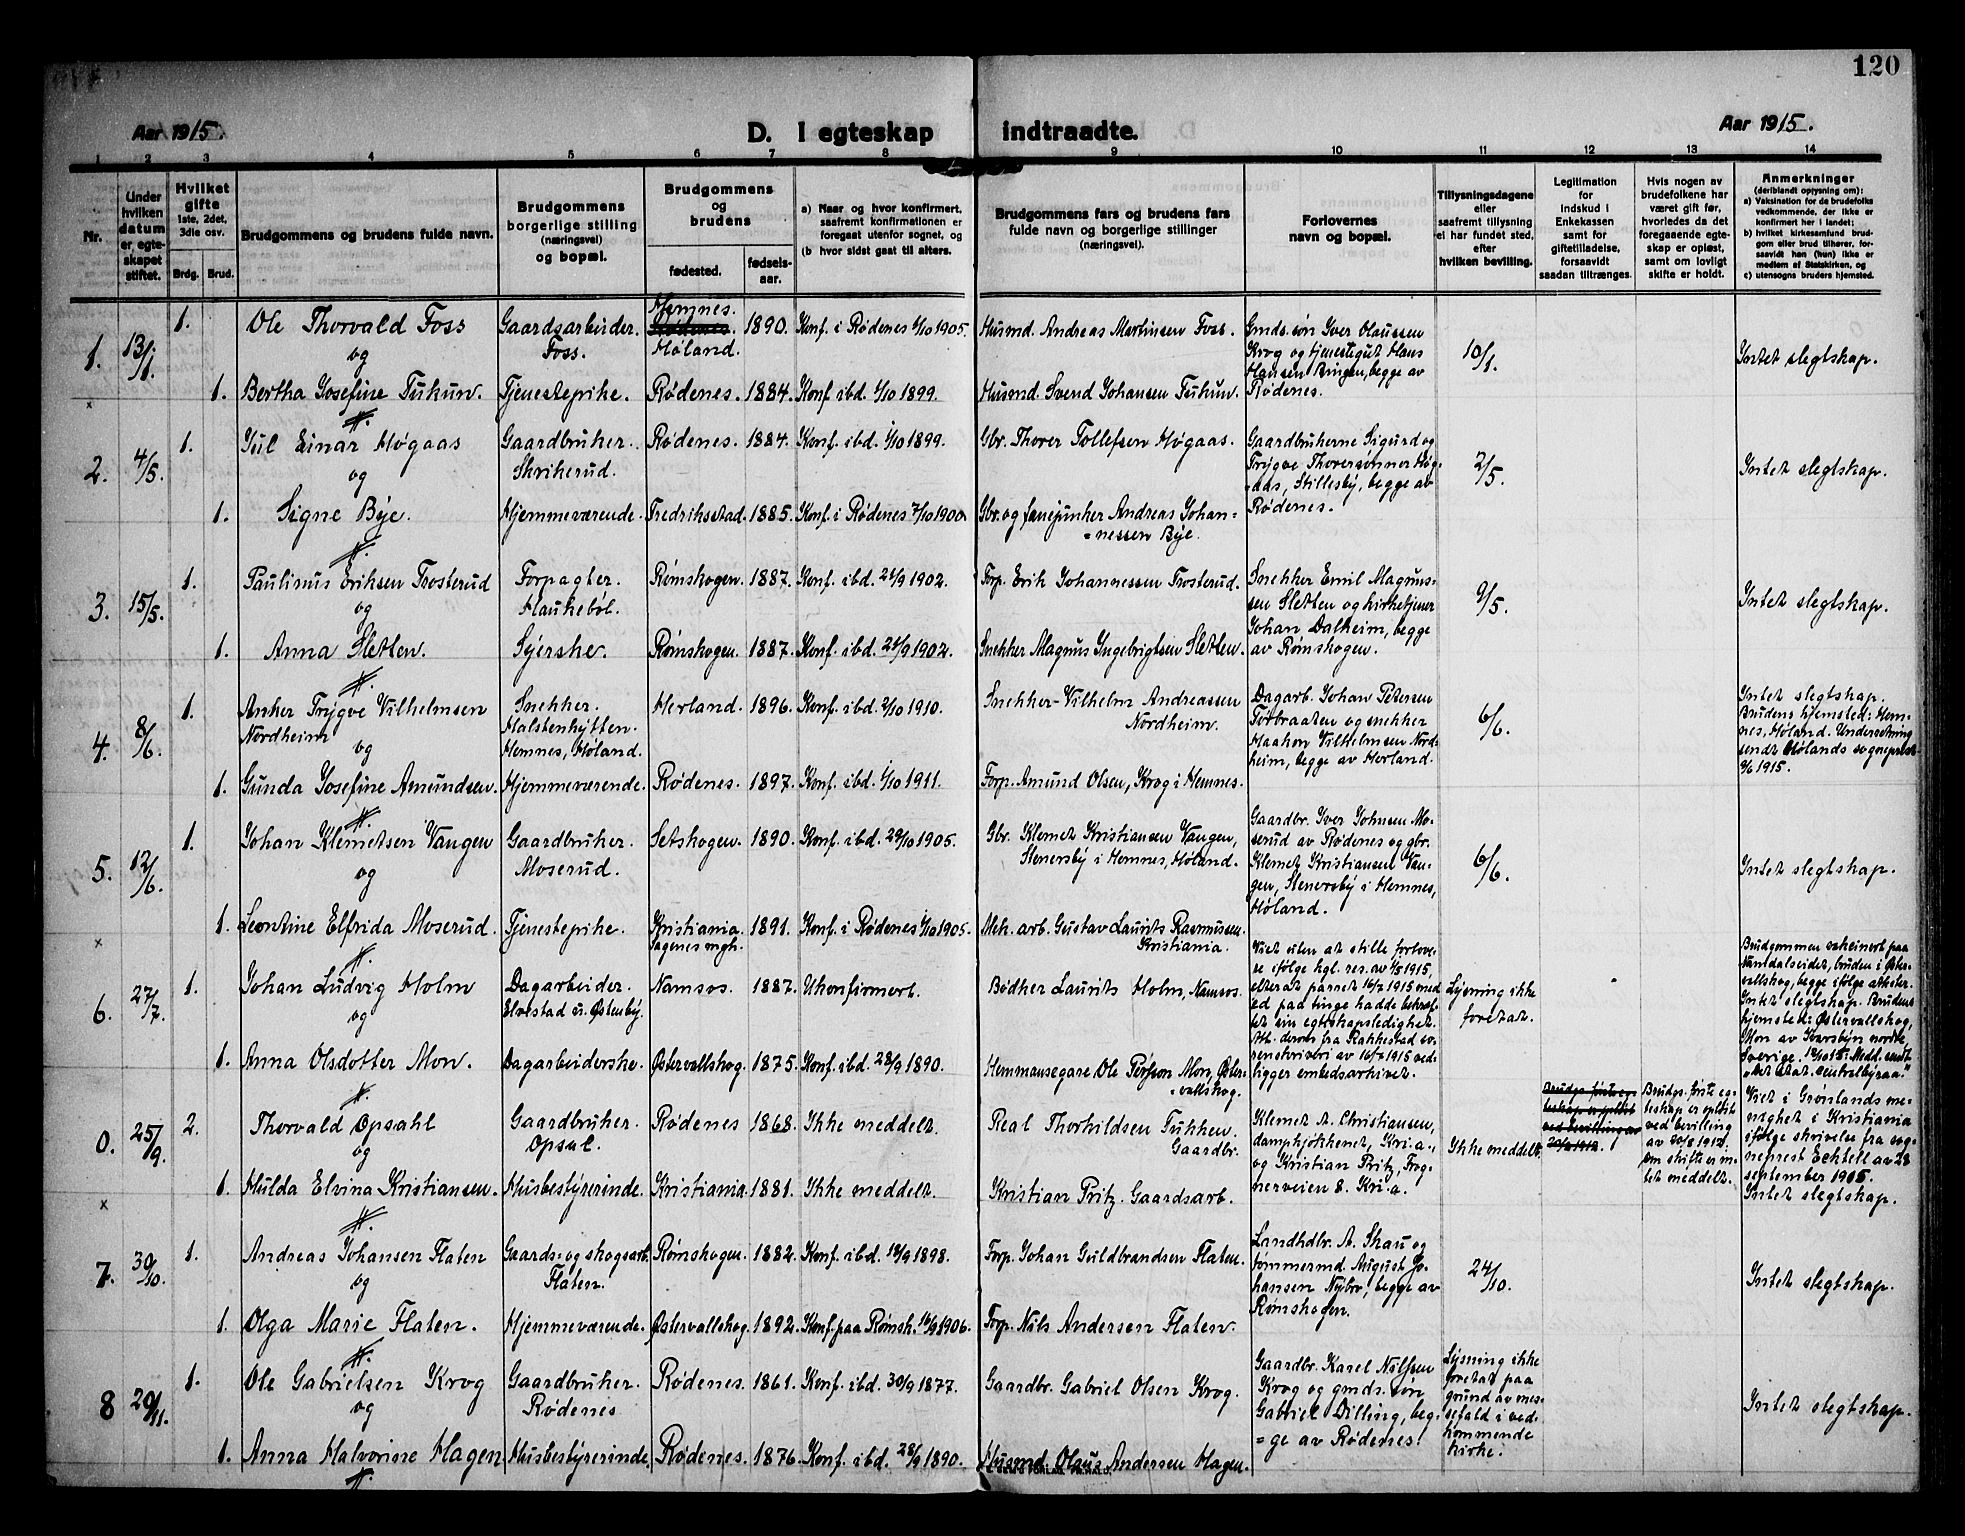 120
Aar 1915.
D. I egteskap indtraadte.
Aar 1915.
1 2 3 4 5 6 7 8 9 10 11 12 13 14
Nr.
Under
hvilken
datum
er egte-
skapet
stiftet.
Hvilket
gifte
1ste, 2det,
3die osv.
Brdg. Brud.
Brudgommens og brudens fulde navn.
Brudgommens
borgerlige stilling
(næringsvei)
og bopæl.
Brudgommens
og
brudens
fødested.
fødsels-
aar.
a) Naar og hvor konfirmert,
saafremt konfirmationen er
foregaat utenfor sognet, og
(b hvor sidst gaat til alters.
Brudgommens fars og brudens fars
fulde navn og borgerlige stillinger
(næringsvei).
Forlovernes
navn og bopæl.
Tillysningsdagene
eller
saafremt tillysning
ei har fundet sted,
efter
hvilken bevilling.
Legitimation
for
indskud i
Enkekassen
samt for
giftetilladelse,
forsaavidt
saadan tiltrænges.
Hvis nogen av
brudefolkene har
været gift før,
hvorledes da det
foregaaende egte-
skap er opløst,
samt om lovligt
skifte er holdt.
Anmerkninger
(deriblandt oplysning om):
a) Vaksination for de brudefolks
vedkommende, der ikke er
konfirmert her i landet;
b) hvilket kirkesamfund brud-
gom eller brud tilhører, for-
saavidt han (hun) ikke er
medlem af Statskirken, og
c) utensogns bruders hjemsted.
1. 13/1. 1. Ole Thorvald Foss
og
Gaardsarbeider.
Foss.
Hemnes.
Rødenes.
Høland.
1890. Konf. i Rødenes 1/10 1905.
Husmd. Andreas Martinsen Foss.
Gmds. søn Iver Olaussen
Krog og tjenestegut Hans
Hansen Ringen, begge av
Rødenes.
10/1.
Intet slegtskap.
1. Bertha Josefine Tukun. Tjenestepike. Rødenes. 1884. Konf. ibd. 1/10 1899. Husmd. Svend Johansen Tukun.
2. 4/5. 1. Jul Einar Høgaas
og
Gaardbruker.
Skrikerud.
Rødenes. 1884. Konf. ibd. 1/10 1899.
Gbr. Thorer Tollefsen Høgaas.
Gaardbrukerne Sigurd og
Trygve Thorersønner Høg-
aas, Stillesby, begge av
Rødenes.
2/5.
Intet slegtskap.
1. Signe Bye. Hjemmeværende. Fredrikstad. 1885. Konf. i Rødenes 7/10 1900.
Gbr. og fanejunker Andreas Johan=
=nessen Bye.
3. 15/5. 1. Paulinus Eriksen Trosterud
og
Forpagter.
Haukebøl.
Rømskogen. 1887. Konf. ibd. 21/9 1902.
Forp. Erik Johannessen Trosterud.
Snekker Emil Magnus-
sen Sletten og kirketjener
Johan Dalheim, begge
av Rømskogen.
9/5.
Intet slegtskap.
1. Anna Sletten. Syerske. Rømskogen. 1887. Konf. ibd. 21/9 1902. Snekker Magnus Ingebrigtsen Sletten.
4. 8/6. 1. Anker Trygve Vilhelmsen
Nordheim
og
Snekker.
Halstenhytten.
Hemnes, Høland.
Herland. 1896. Konf. ibd. 2/10 1910.
Snekker Vilhelm Andreassen
Nordheim.
Dagarb. Johan Petersen
Torbraaten og snekker
Haakon Vilhelmsen Nord=
heim, begge av Herland.
6/6.
Intet slegtskap.
Brudens hjemsted: Hem-
nes, Høland. Underretning
sendt Hølands sogneprest
1915.
1. Gunda Josefine Amundsen. Hjemmeværende. Rødenes. 1897. Konf. ibd. 1/10 1911. Forp. Amund Olsen, Krog i Hemnes.
5. 12/6. 1. Johan Klemetsen Vangen
og
Gaardbruker.
Moserud.
Setskogen. 1890. Konf. ibd. 29/10 1905.
Gbr. Klemet Kristiansen Vangen,
Stenersby i Hemnes, Høland.
Gaardbr. Iver Johnsen Mo-
serud av Rødenes og gbr.
Klemet Kristiansen Van-
gen, Stenersby i Hemnes,
Høland.
6/6.
Intet slegtskap.
1. Leontine Elfrida Moserud. Tjenestepike. Kristiania.
Sagenes mgh.
1891. Konf. i Rødenes 1/10 1905.
Mek. arb. Gustav Laurits Rasmussen.
Kristiania.
6. 27/7. 1. Johan Ludvig Holm
og
Dagarbeider.
Elvestad u. Østenby.
Namsos. 1887. Ukonfirmert.
Bødker Laurits Holm, Namsos.
Viet uten at stille forlove-
re ifølge kgl. res. av 1915,
efter at parret 16/7 1915 med
ed paa tinge hadde bekræf-
tet sin egteskapsledighet.
Att. derom fra Rakkestad so-
renskriveri av 16/7 1915 ved-
ligger embedsarkivet.
Lysning ikke
foretat.
Brudgommen vakcinert paa
Namdalseidet, bruden i Øster-
vallskog, begge ifølge attester.
Intet slegtskap. Brudens
hjemsted: Østervallskog,
Mon av Ivarsbyn nordre,
Sverige. Medl. sendt
"Det stat. centralbyraa."
1. Anna Olsdotter Mon. Dagarbeiderske. Østervallskog. 1875. Konf. ibd. 28/9 1890.
Hemmansegare Ole Persson Mon, Øster-
vallskog.
0. 25/9. 2. Thorvald Opsahl
og
Gaardbruker.
Opsal.
Rødenes 1868. Ikke meddelt.
Real Thorkildsen Tukken.
Gaardbr.
Klemet A. Christiansen,
dampkjøkkenet, Kr.i.a.,
og Kristian Pritz, Frog-
nerveien 8. Kr.i.a.
Ikke meddelt.
Brudgs. første eg-
teskap er opløst
ved bevilling av
20/8 1912.
Brudgs. første eg-
teskap er opløst
ved bevilling
av 20/8 1912.
Om skifte er in-
tet meddelt.
Viet i Grønlands me-
nighet i Kristiania
ifølge skrivelse fra sog-
neprest Echtell av 28
september 1915.
Intet slegtskap.
1. Hilda Elvina Kristiansen. Husbestyrerinde. Kristiania. 1881. Ikke meddelt. Kristian Pritz. Gaardsarb.
7. 30/10. 1. Andreas Johansen Flaten
og
Gaards- og skogsarb.
Flaten.
Rømskogen. 1882. Konf. ibd. 18/9 1898.
Forp. Johan Guldbrandsen Flaten.
Landhdbr. A. Skau og
tømmermd. August Jo-
hansen Nybro, begge av
Rømskogen.
24/10.
Intet slegtskap.
1. Olga Marie Flaten. Hjemmeværende. Østervallskog. 1892. Konf. paa Rømsk. 16/9 1906. Forp. Nils Andersen Flaten.
8 20/11. 1. Ole Gabrielsen Krog
og
Gaardbruker.
Rødenes
Rødenes. 1861. Konf. ibd. 30/9 1877.
Gaardbr. Gabriel Olsen Krog.
Gaardbr. Karel Nilssen
Krog og gmds. søn
Gabriel Dilling, beg-
=ge av Rødenes.
Lysning ikke
foretat paa
grund av mes-
sefald i ved-
kommende
kirke.
Intet slegtskap.
1. Anna Halvorine Hagen Husbestyrerinde. Rødenes. 1876. Konf. ibd. 28/9 1890. Husmd. Olaus Andersen Hagen.